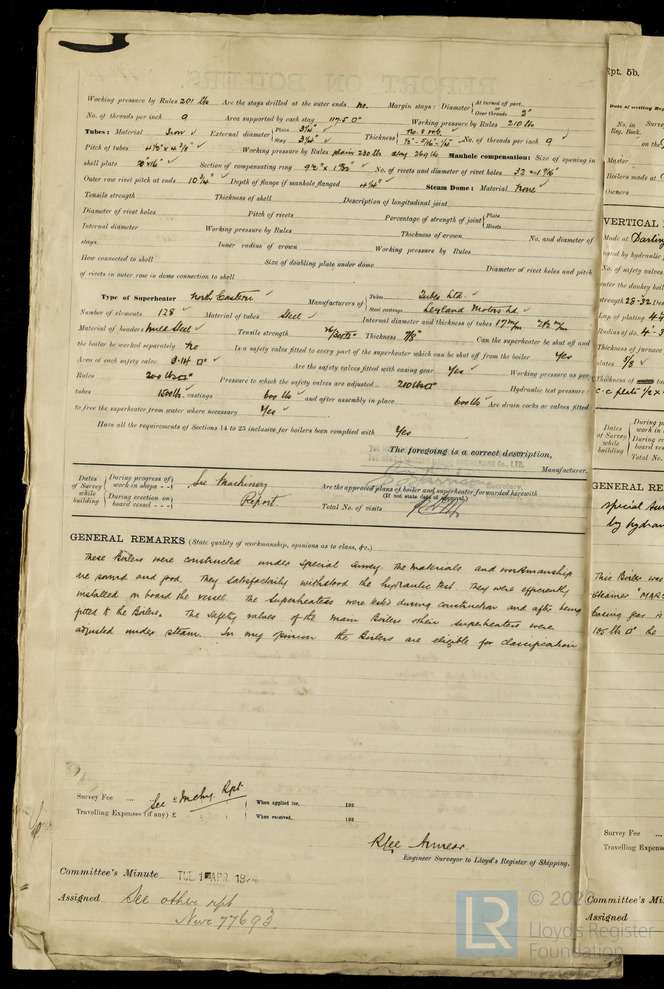 Working pressure by Rules 201 lbs Are the stays drilled at the outer ends No. Margin stays: Diameter { At turned off part, or Over threads 2"
No. of threads per inch 9 Area supported by each stay 117.5 □" Working pressure by Rules 210 lbs
Tubes: Material Iron External diameter { Plain 3 1/4" Stay 3 1/4" Thickness { No. 8 No. of threads per inch 9
Pitch of tubes 4 1/2" x 4 1/2" Working pressure by Rules plain 230 lbs stay Manhole compensation: Size of opening in
shell plate Section of compensating ring No. of rivets and diameter of rivet holes 32
Outer row rivet pitch at ends 10 3/4" Depth of flange if manhole flanged Steam Dome: Material None
Tensile strength Thickness of shell Description of longitudinal joint
Diameter of rivet holes Pitch of rivets Percentage of strength of joint { Plate Rivets
Internal diameter Working pressure by Rules Thickness of crown No. and diameter of
stays Inner radius of crown Working pressure by Rules
How connected to shell Size of doubling plate under dome Diameter of rivet holes and pitch
of rivets in outer row in dome connection to shell
Type of Superheater North Eastern Manufacturers of { Tubes Tubes Ltd. Steel castings Leyland Motors Ltd.
Number of elements 128 Material of tubes Steel Internal diameter and thickness of tubes 17 m/m 2 1/2 m/m
Material of headers Mild Steel Tensile strength Thickness 7/8" Can the superheater be shut off and
the boiler be worked separately No Is a safety valve fitted to every part of the superheater which can be shut off from the boiler Yes
Area of each safety valve 3.14 □" Are the safety valves fitted with easing gear Yes Working pressure as per
Rules 200 lbs □" Pressure to which the safety valves are adjusted 210 lbs □" Hydraulic test pressure:
tubes castings 600 lbs and after assembly in place 600 lbs Are drain cocks or valves fitted
to free the superheater from water where necessary Yes
Have all the requirements of Sections 14 to 23 inclusive for boilers been complied with Yes
The foregoing is a correct description,
Secretary. Manufacturer.
Dates of Survey while building { During progress of work in shops - - } { During erection on board vessel - - - } See Machinery Report.
Are the approved plans of boiler and superheater forwarded herewith
(If not state date of approval.)
Total No. of visits
GENERAL REMARKS (State quality of workmanship, opinions as to class, &c.)
These Boilers were constructed under Special Survey. The materials and workmanship
are sound and good. They satisfactorily withstood the hydraulic test. They were efficiently
installed on board the vessel. The Superheaters were tested during construction and after being
fitted to the Boilers. The Safety valves of the main Boilers & their superheaters were
adjusted under steam. In my opinion the Boilers are eligible for classification
Survey Fee ... ... See Mchy. Rpt When applied for, 193
Travelling Expenses (if any) £ : : When received, 193
Engineer Surveyor to Lloyd's Register of Shipping.
Committee's Minute TUE. APR. 
Assigned See other rpt
Nwc 77693
Rpt. 5b.
Date of writing Re
No. in Surve
Reg. Book.
on the
Master
Boilers made at
Owners
VERTICAL
Made at Darling
tested by hydraulic
No. of safety valves
enter the donkey boi
strength 28-32
Lap of plating
Radius of do. 4'-3
Thickness of furnace
plates 5/8
Thickness of tu
Dates of Survey while building
During p
work in
During
board
Total No.
GENERAL RE
Special Sur
by hydra
This Boiler was
steamer "MAR
Easing gear is
105 lbs □" the
Survey Fee ...
Travelling Expense
Committee's Mi
Assigned
LR
© 2020
Lloyd's Register
Foundation